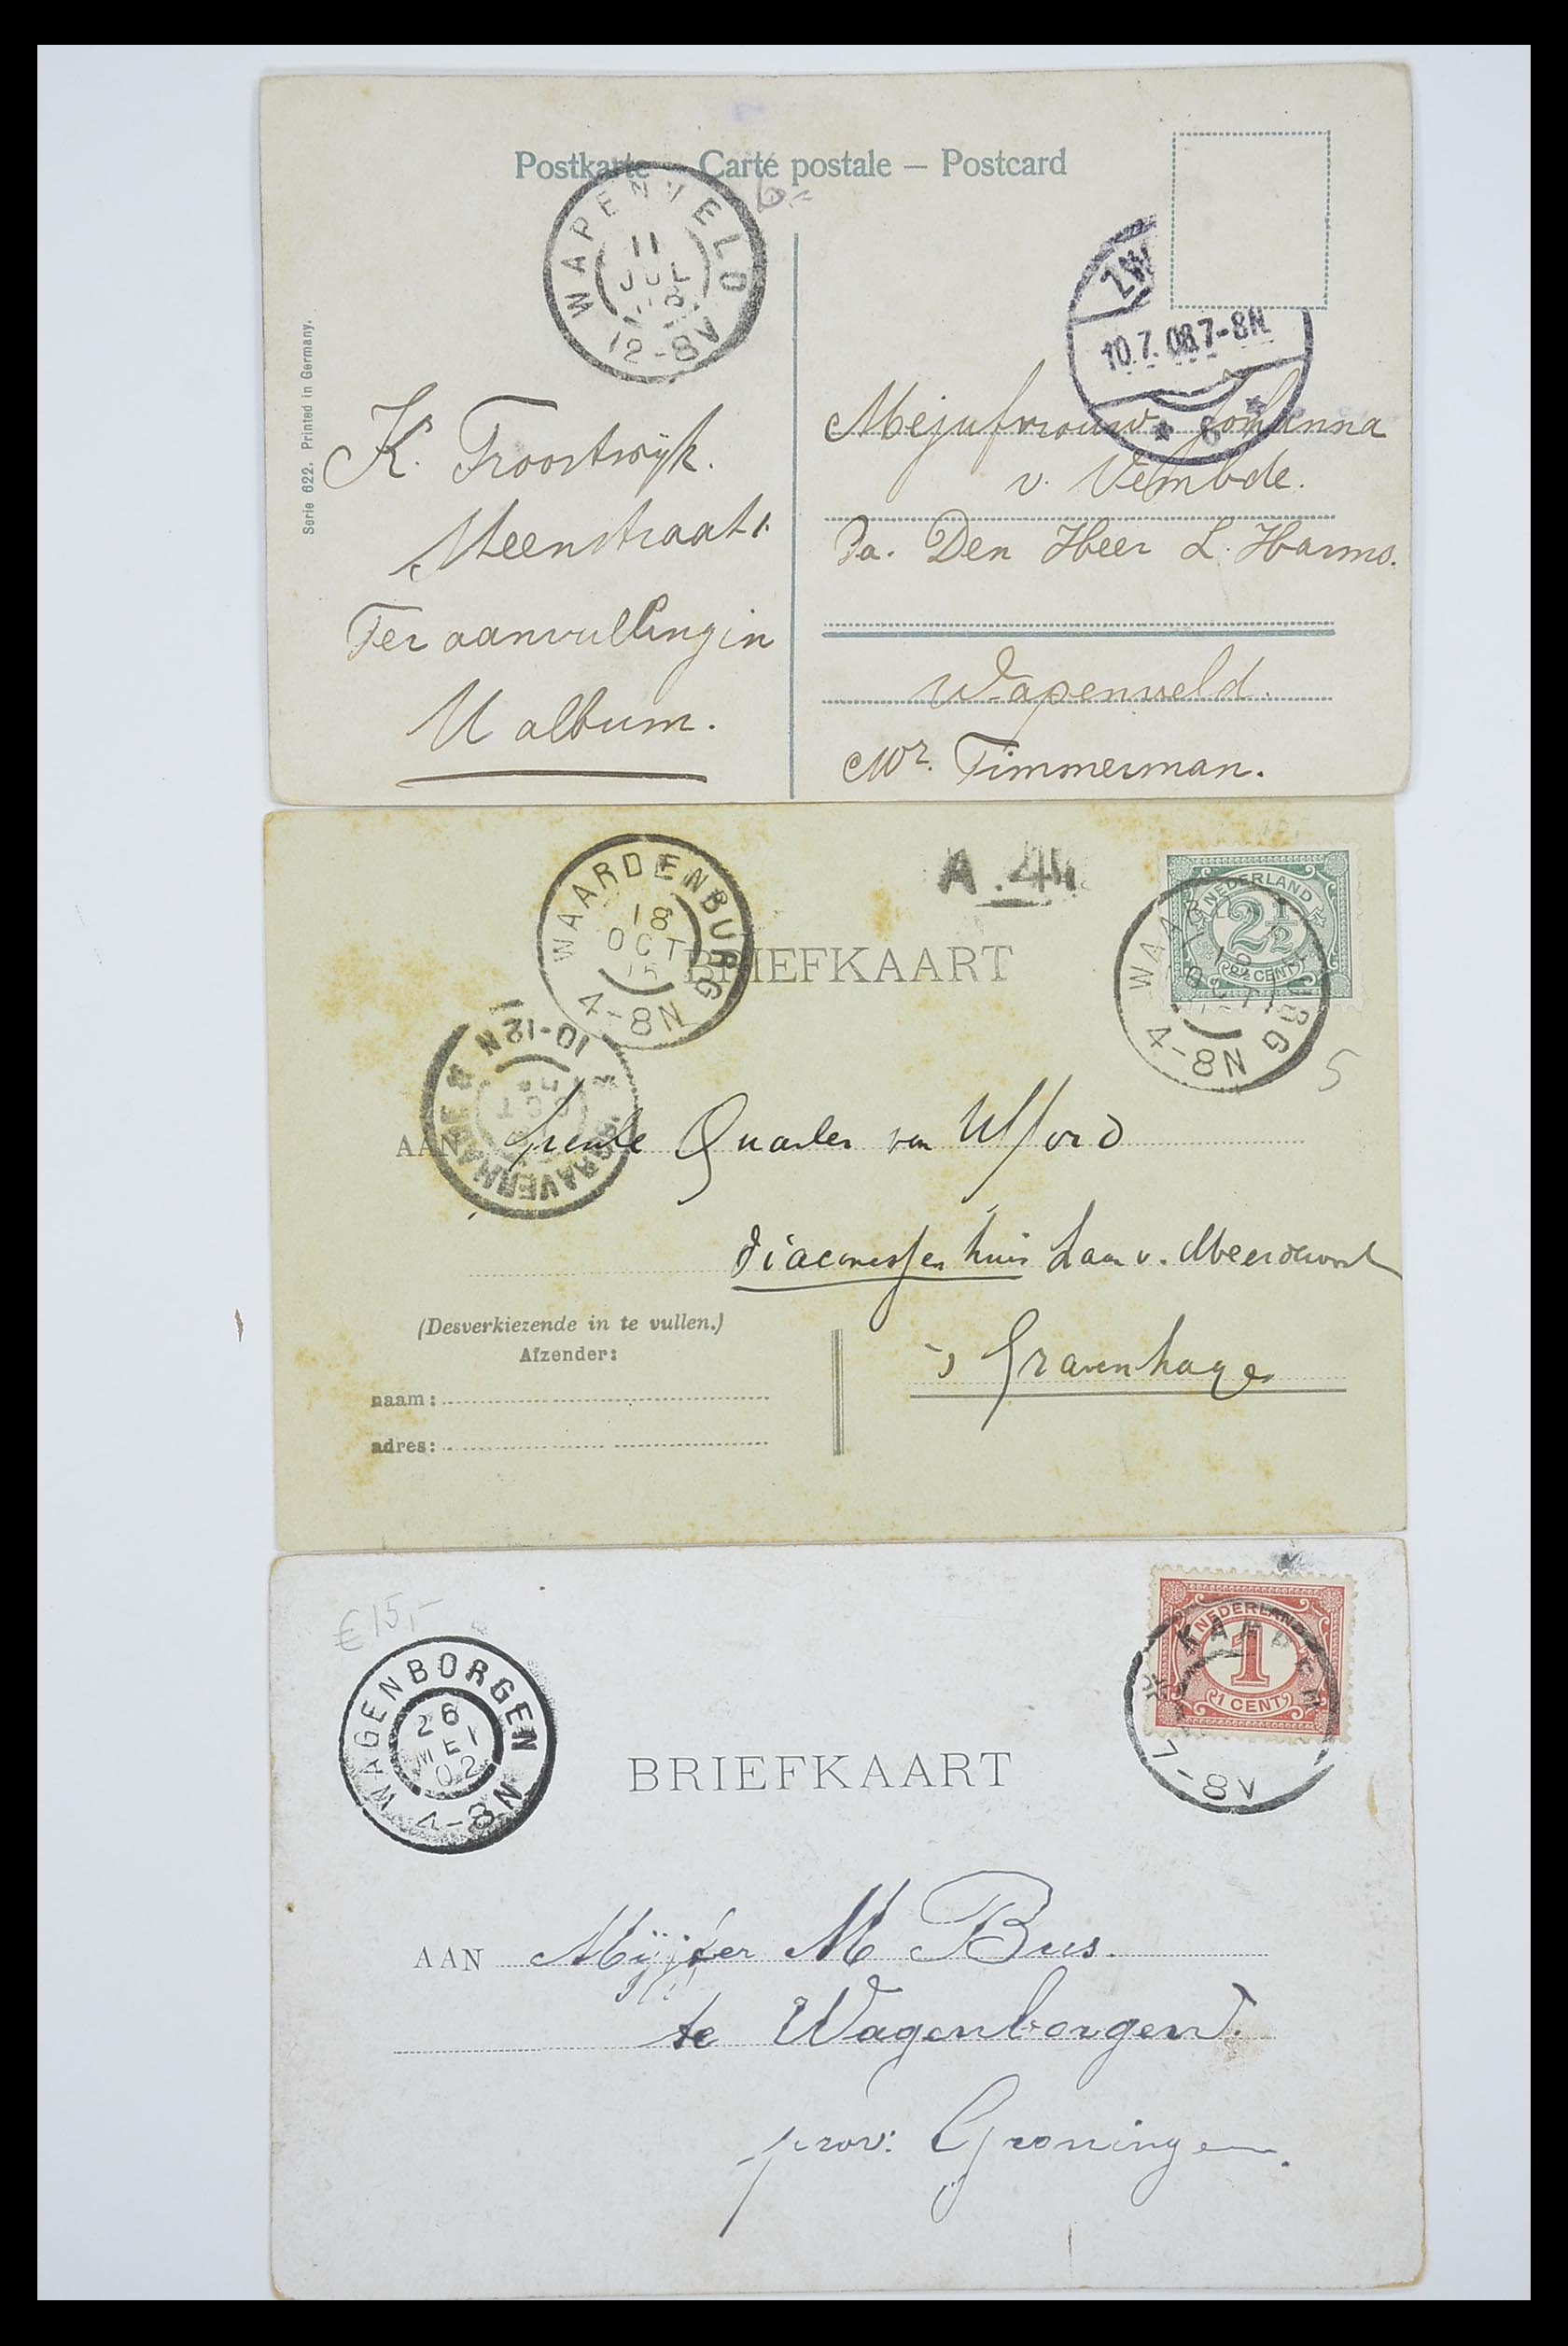 Postkarte – Carte postale – Postcard
6.-
WAPENVELD
11
JUL
12-8V
ZW
10.7.08.7-8N
6
Serie 622. Printed in Germany.
K. Troostwijk.
Steenstraat 1.
Ter aanvulling in
U album.
Mejufvrouw Johanna
v. Vembde.
Pa. Den Heer L. Harms.
Wapenveld.
Mr. Timmerman.
WAARDENBURG
18
OCT
15
4-8N
A.44
NEDERLAND
2½
2½ CENT
WAAR BG
4-8N
5
BRIEFKAART
'S GRAVENHAGE
10-12N
OCT
AAN Freule Quarles van Ufford
Diaconessenhuis Laan v. Meerdervoort
's Gravenhage
(Desverkiezende in te vullen.)
Afzender:
naam:
adres:
€15,-
WAGENBORGEN
26
MEI
02
4-8N
NEDERLAND
1
1 CENT
KAMPEN
7-8V
BRIEFKAART
AAN Mejfer M Bus.
te Wagenborgen.
prov: Groningen.